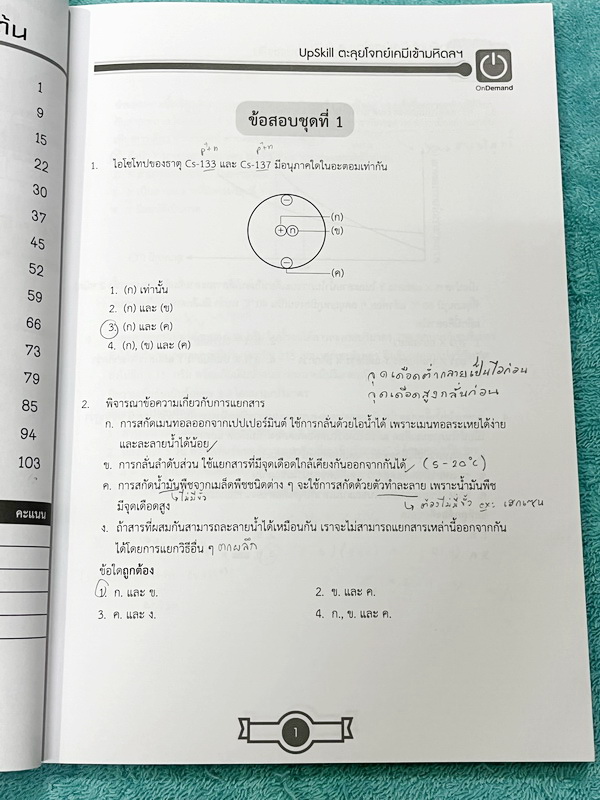 ก้น
1
9
15
22
30
37
45
52
59
66
73
79
85
94
103
คะแนน
UpSkill ตะลุยโจทย์เคมีเข้ามหิดลฯ
OnDemand
ข้อสอบชุดที่ 1
p+n p+n
1. ไอโซโทปของธาตุ Cs-133 และ Cs-137 มีอนุภาคใดในอะตอมเท่ากัน
−
(ก)
+ n (ข)
−
(ค)
1. (ก) เท่านั้น
2. (ก) และ (ข)
3. (ก) และ (ค)
4. (ก), (ข) และ (ค)
จุดเดือดต่ำกลายเป็นไอก่อน
จุดเดือดสูงกลั่นก่อน
2. พิจารณาข้อความเกี่ยวกับการแยกสาร
ก. การสกัดเมนทอลออกจากเปปเปอร์มินต์ ใช้การกลั่นด้วยไอน้ำได้ เพราะเมนทอลระเหยได้ง่าย
และละลายน้ำได้น้อย
ข. การกลั่นลำดับส่วน ใช้แยกสารที่มีจุดเดือดใกล้เคียงกันออกจากกันได้ (5 - 20°C)
ค. การสกัดน้ำมันพืชจากเมล็ดพืชชนิดต่าง ๆ จะใช้การสกัดด้วยตัวทำละลาย เพราะน้ำมันพืช
มีจุดเดือดสูง ไม่มีขั้ว ต้องไม่มีขั้ว ex: เฮกเซน
ง. ถ้าสารที่ผสมกันสามารถละลายน้ำได้เหมือนกัน เราจะไม่สามารถแยกสารเหล่านี้ออกจากกัน
ได้โดยการแยกวิธีอื่น ๆ ตกผลึก
ข้อใดถูกต้อง
1. ก. และ ข. 2. ข. และ ค.
3. ค. และ ง. 4. ก., ข. และ ค.
1